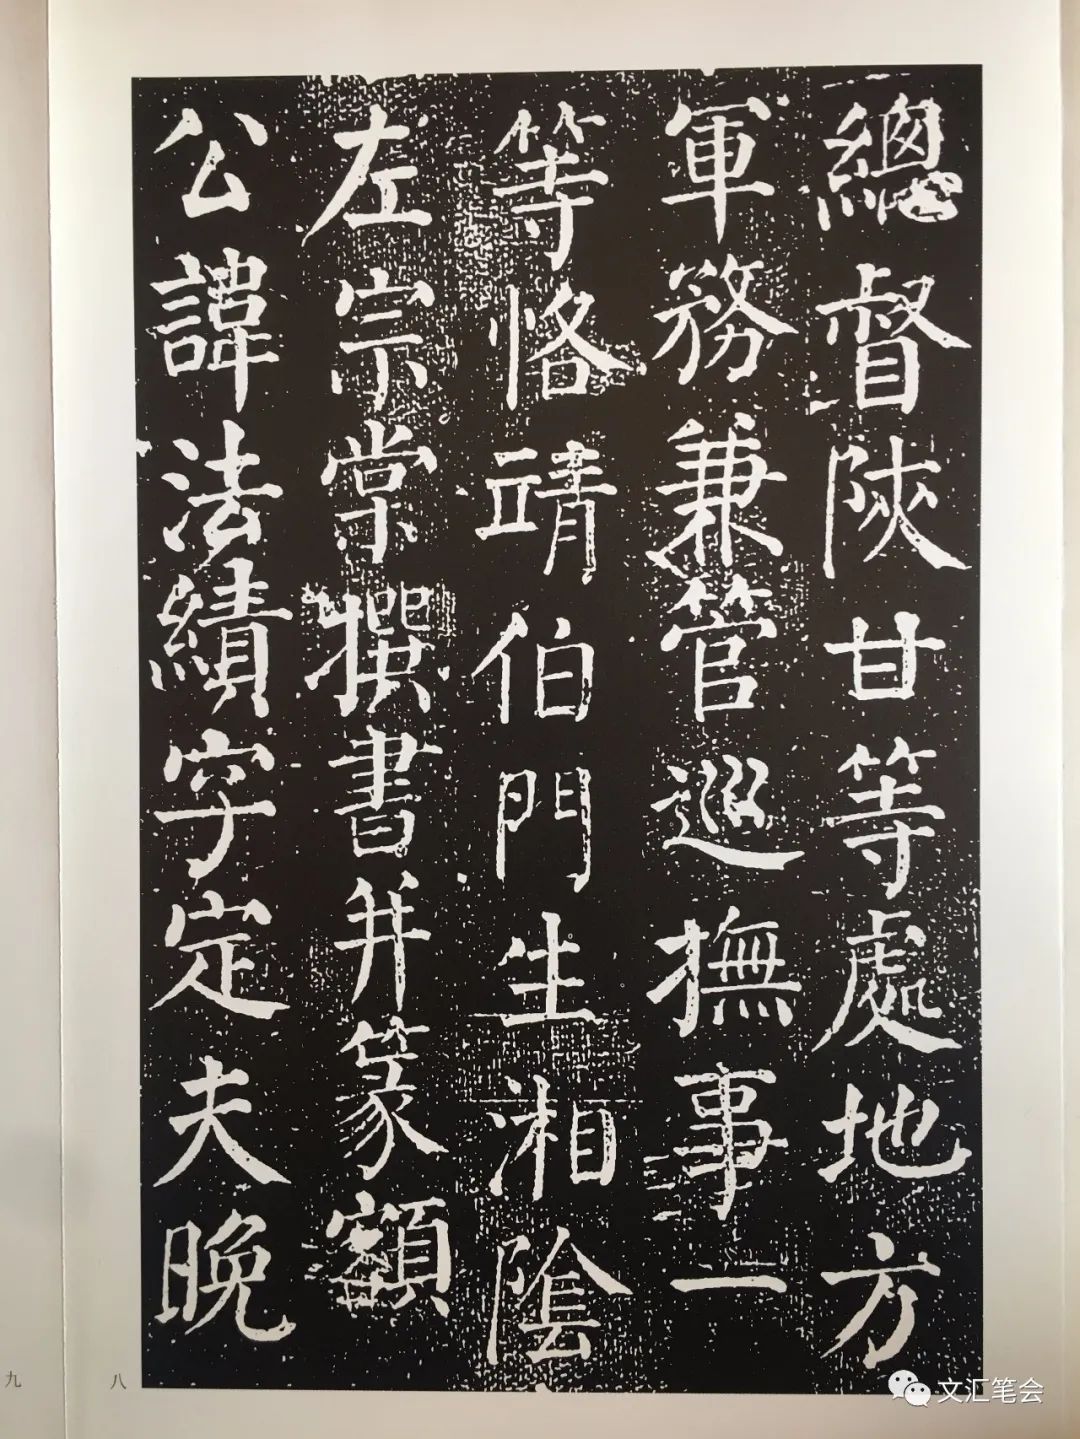 總督陝甘等處地方
軍務兼管巡撫事一
等恪靖伯門生湘陰
左宗棠撰書并篆額
公諱法績字定夫晚
八
九
文汇笔会